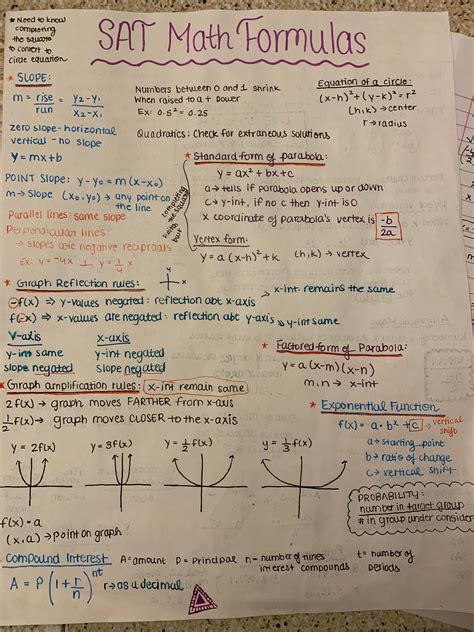 * Need to know
completing
the square
to convert to
circle equation
SAT Math Formulas
* SLOPE:
m = rise/run = y₂-y₁/x₂-x₁
zero slope - horizontal
vertical - no slope
y = mx+b
Numbers between 0 and 1 shrink
When raised to a + power
Ex: 0.5² = 0.25
Equation of a circle:
(x-h)²+(y-k)²=r²
(h,k)→center
r→radius
Quadratics: Check for extraneous solutions
POINT Slope: y-y₀ = m(x-x₀)
m→ Slope (x₀,y₀) → any point on
the line
Parallel lines: same slope
Perpendicular lines:
→ slopes are negative reciprocals
Ex: y=-4x ⊥ y=1/4x
* Standard form of parabola:
y = ax²+bx+c
a→ tells if parabola opens up or down
c→ y-int, if no c then y-int is 0
x coordinate of parabola's vertex is -b/2a
completing
the square
Vertex form:
y = a(x-h)²+k (h,k) → vertex
* Graph Reflection rules:
-f(x) ⇒ y-values negated: reflection abt x-axis
x-int remains the same
f(-x) ⇒ x-values are negated: reflection abt y-axis
y-int same
Y-axis x-axis
y-int same y-int negated
slope negated slope negated
* Factored form of Parabola:
y = a(x-m)(x-n)
m,n → x-int
* Graph amplification rules: x-int remain same
2f(x) → graph moves FARTHER from x-axis
1/2f(x)→ graph moves CLOSER to the x-axis
* Exponential Function
f(x) = a·b^x+c → vertical
shift
a→ starting point
b→ ratio of change
c→ vertical shift
y = 2f(x) y = 3f(x) y = 1/2f(x) y = 1/3f(x)
f(x)=a
(x,a)→point on graph
PROBABILITY:
number in target group
# in group under consider
* Compound Interest
A=amount P=Principal n-number of times
interest compounds
t= number of
periods
A = P(1+r/n)^nt r→as a decimal